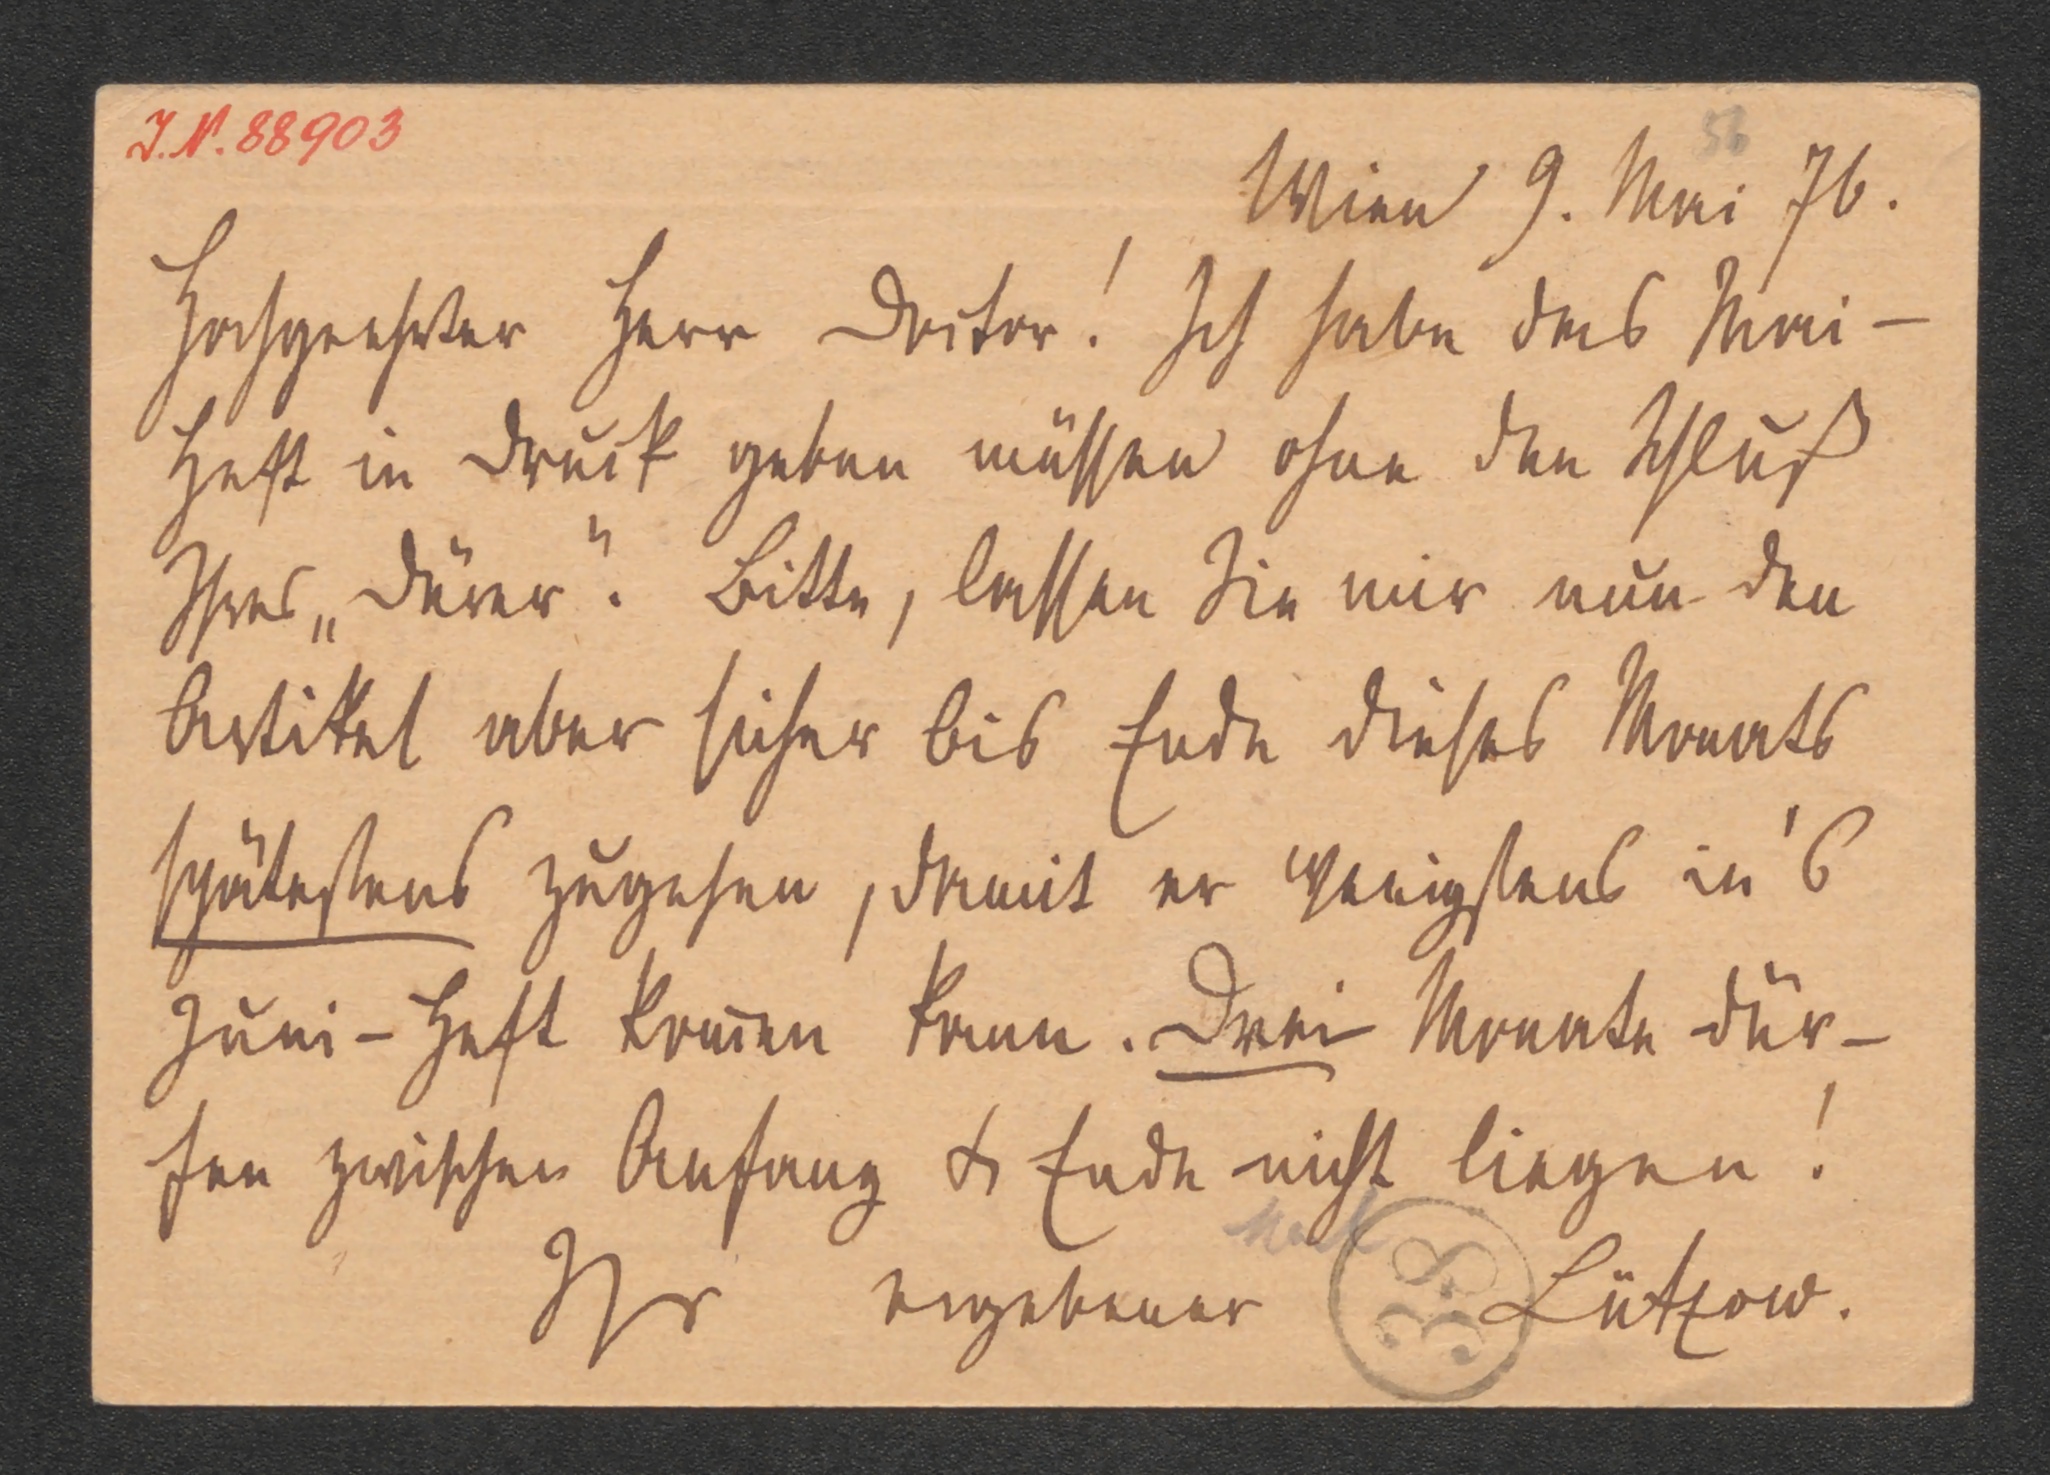 J.N. 88903
56
Wien 9. Mai 76.
Hochgeehrter Herr Doctor! Ich habe das Mai-
Heft in Druck geben müssen ohne den Schluß
Ihres „Dürer“. Bitte, lassen Sie mir nun den
Artikel aber sicher bis Ende dieses Monats
spätestens zugehen, damit er wenigstens in's
Juni-Heft kom̄en kann. Drei Monate dür-
fen zwischen Anfang & Ende nicht liegen!
Ihr ergebener Lützow.
38